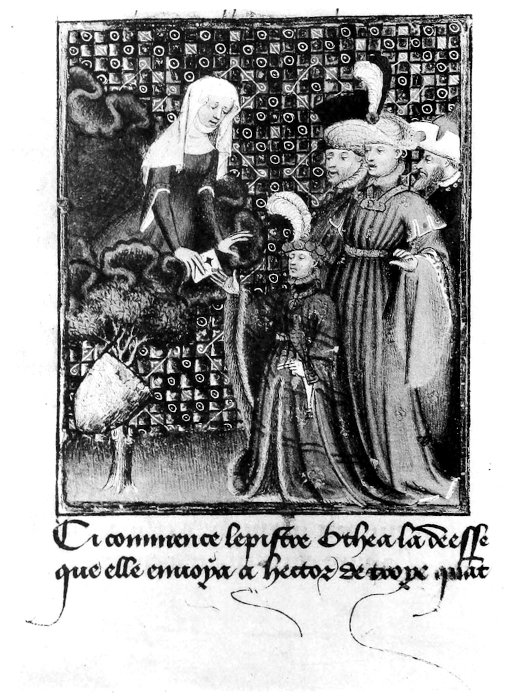 Ci commence lepistre Othea la deesse
que elle envoya a hector de troye quāt